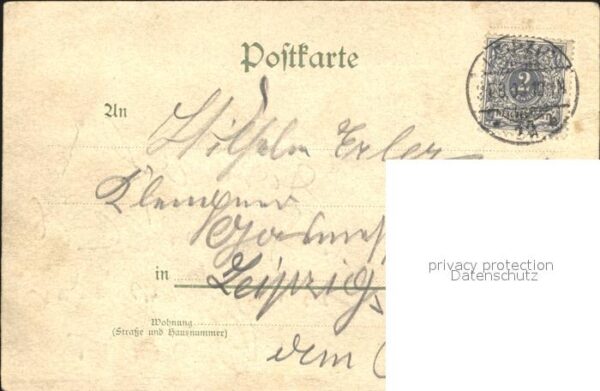 Postkarte
2
An Wilhelm Erler
Klempner
in Leipzig
Wohnung
(Straße und Hausnummer)
dem
privacy protection
Datenschutz